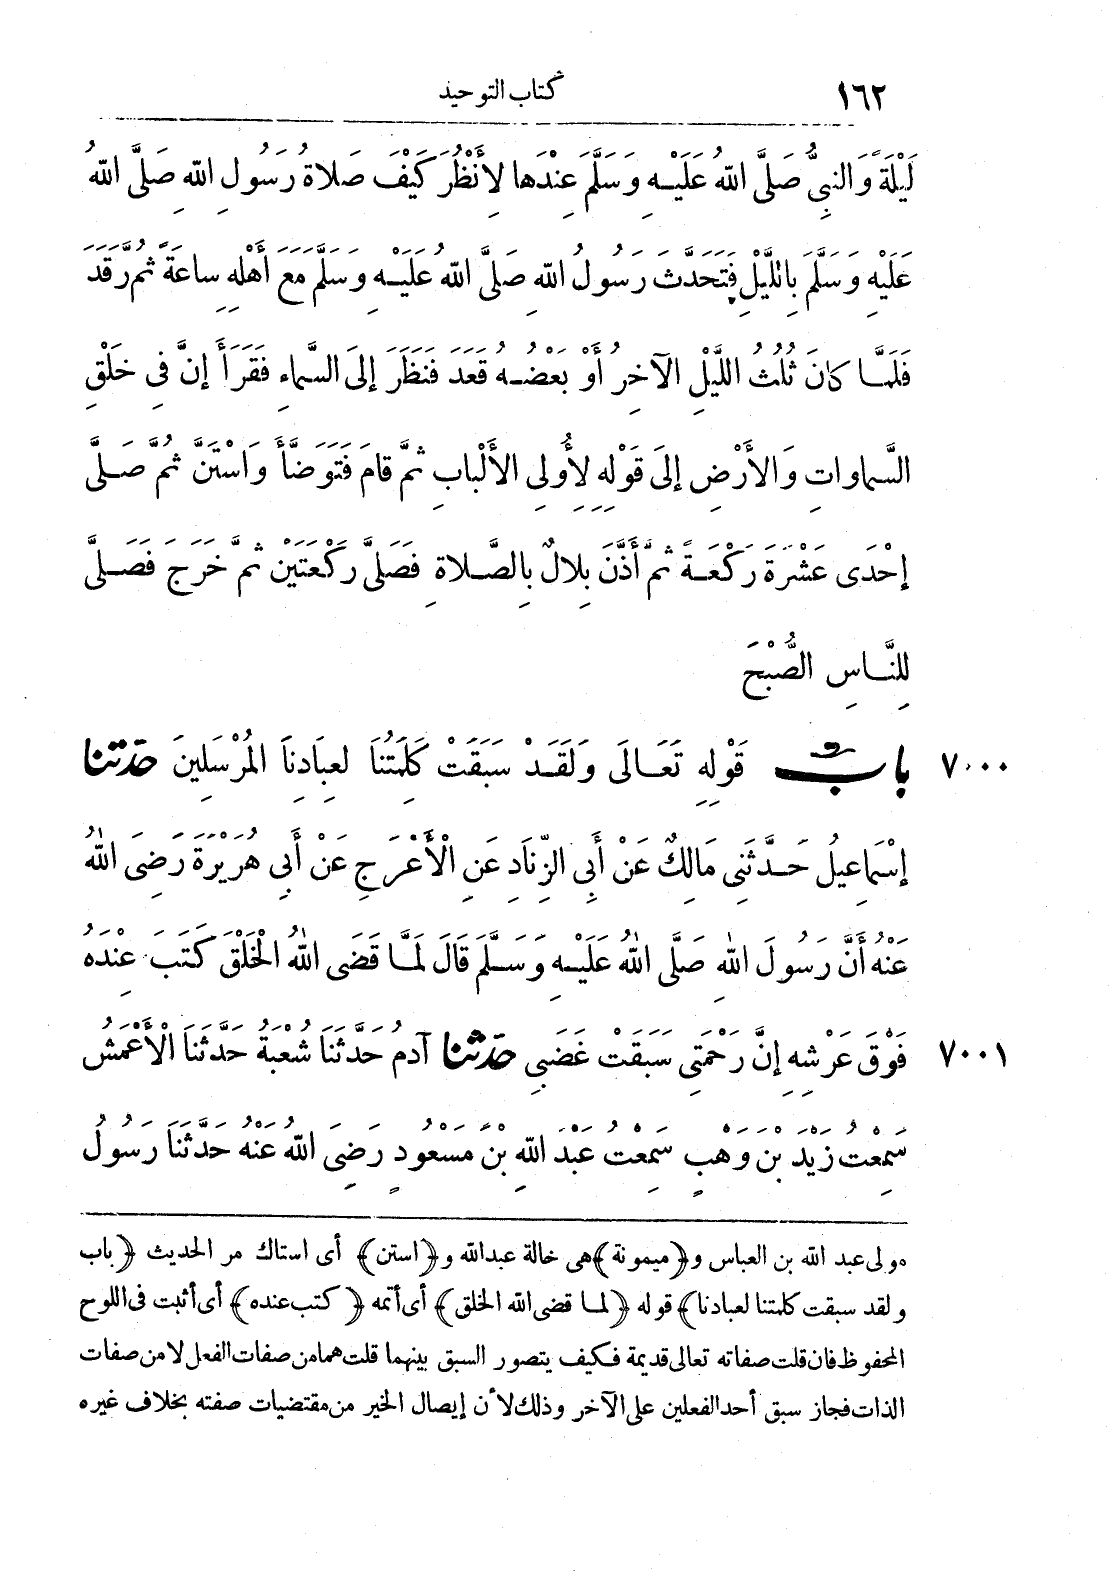 ١٦٢ كتاب التوحيد
لَيْلَةً وَالنبِيُّ صَلَّى اللهُ عَلَيْهِ وَسَلَّمَ عِنْدَها لِأَنْظُرَ كَيْفَ صَلاةُ رَسُولِ اللهِ صَلَّى اللهُ
عَلَيْهِ وَسَلَّمَ بِاللَّيْلِ فَتَحَدَّثَ رَسُولُ اللهِ صَلَّى اللهُ عَلَيْهِ وَسَلَّمَ مَعَ أَهْلِهِ ساعَةً ثُمَّ رَقَدَ
فَلَمَّا كانَ ثُلُثُ اللَّيْلِ الآخِرُ أَوْ بَعْضُهُ قَعَدَ فَنَظَرَ إلَى السَّماءِ فَقَرَأَ إنَّ فِي خَلْقِ
السَّماواتِ وَالأَرْضِ إلَى قَوْلِهِ لِأُولِي الأَلْبابِ ثُمَّ قامَ فَتَوَضَّأَ وَاسْتَنَّ ثُمَّ صَلَّى
إحْدَى عَشْرَةَ رَكْعَةً ثُمَّ أَذَّنَ بِلالٌ بِالصَّلاةِ فَصَلَّى رَكْعَتَيْنِ ثُمَّ خَرَجَ فَصَلَّى
لِلنَّاسِ الصُّبْحَ
٧٠٠٠ بابٌ قَوْلِهِ تَعَالَى وَلَقَدْ سَبَقَتْ كَلِمَتُنَا لِعِبَادِنَا المُرْسَلِينَ حدّثنا
إسْمَاعِيلُ حَدَّثَنِي مَالِكٌ عَنْ أَبِي الزِّنَادِ عَنِ الْأَعْرَجِ عَنْ أَبِي هُرَيْرَةَ رَضِيَ اللهُ
عَنْهُ أَنَّ رَسُولَ اللهِ صَلَّى اللهُ عَلَيْهِ وَسَلَّمَ قَالَ لَمَّا قَضَى اللهُ الْخَلْقَ كَتَبَ عِنْدَهُ
٧٠٠١ فَوْقَ عَرْشِهِ إنَّ رَحْمَتِي سَبَقَتْ غَضَبِي حدّثنا آدَمُ حَدَّثَنَا شُعْبَةُ حَدَّثَنَا الْأَعْمَشُ
سَمِعْتُ زَيْدَ بْنَ وَهْبٍ سَمِعْتُ عَبْدَ اللهِ بْنَ مَسْعُودٍ رَضِيَ اللهُ عَنْهُ حَدَّثَنَا رَسُولُ
مولى عبد الله بن العباس و﴿ميمونة﴾ هي خالة عبدالله و﴿استن﴾ أى استاك مر الحديث ﴿باب
ولقد سبقت كلمتنا لعبادنا﴾ قوله ﴿لما قضى الله الخلق﴾ أى أتمه ﴿كتب عنده﴾ أى أثبت فى اللوح
المحفوظ فان قلت صفاته تعالى قديمة فكيف يتصور السبق بينهما قلت هما من صفات الفعل لا من صفات
الذات فجاز سبق أحد الفعلين على الآخر وذلك لأن إيصال الخير من مقتضيات صفته بخلاف غيره